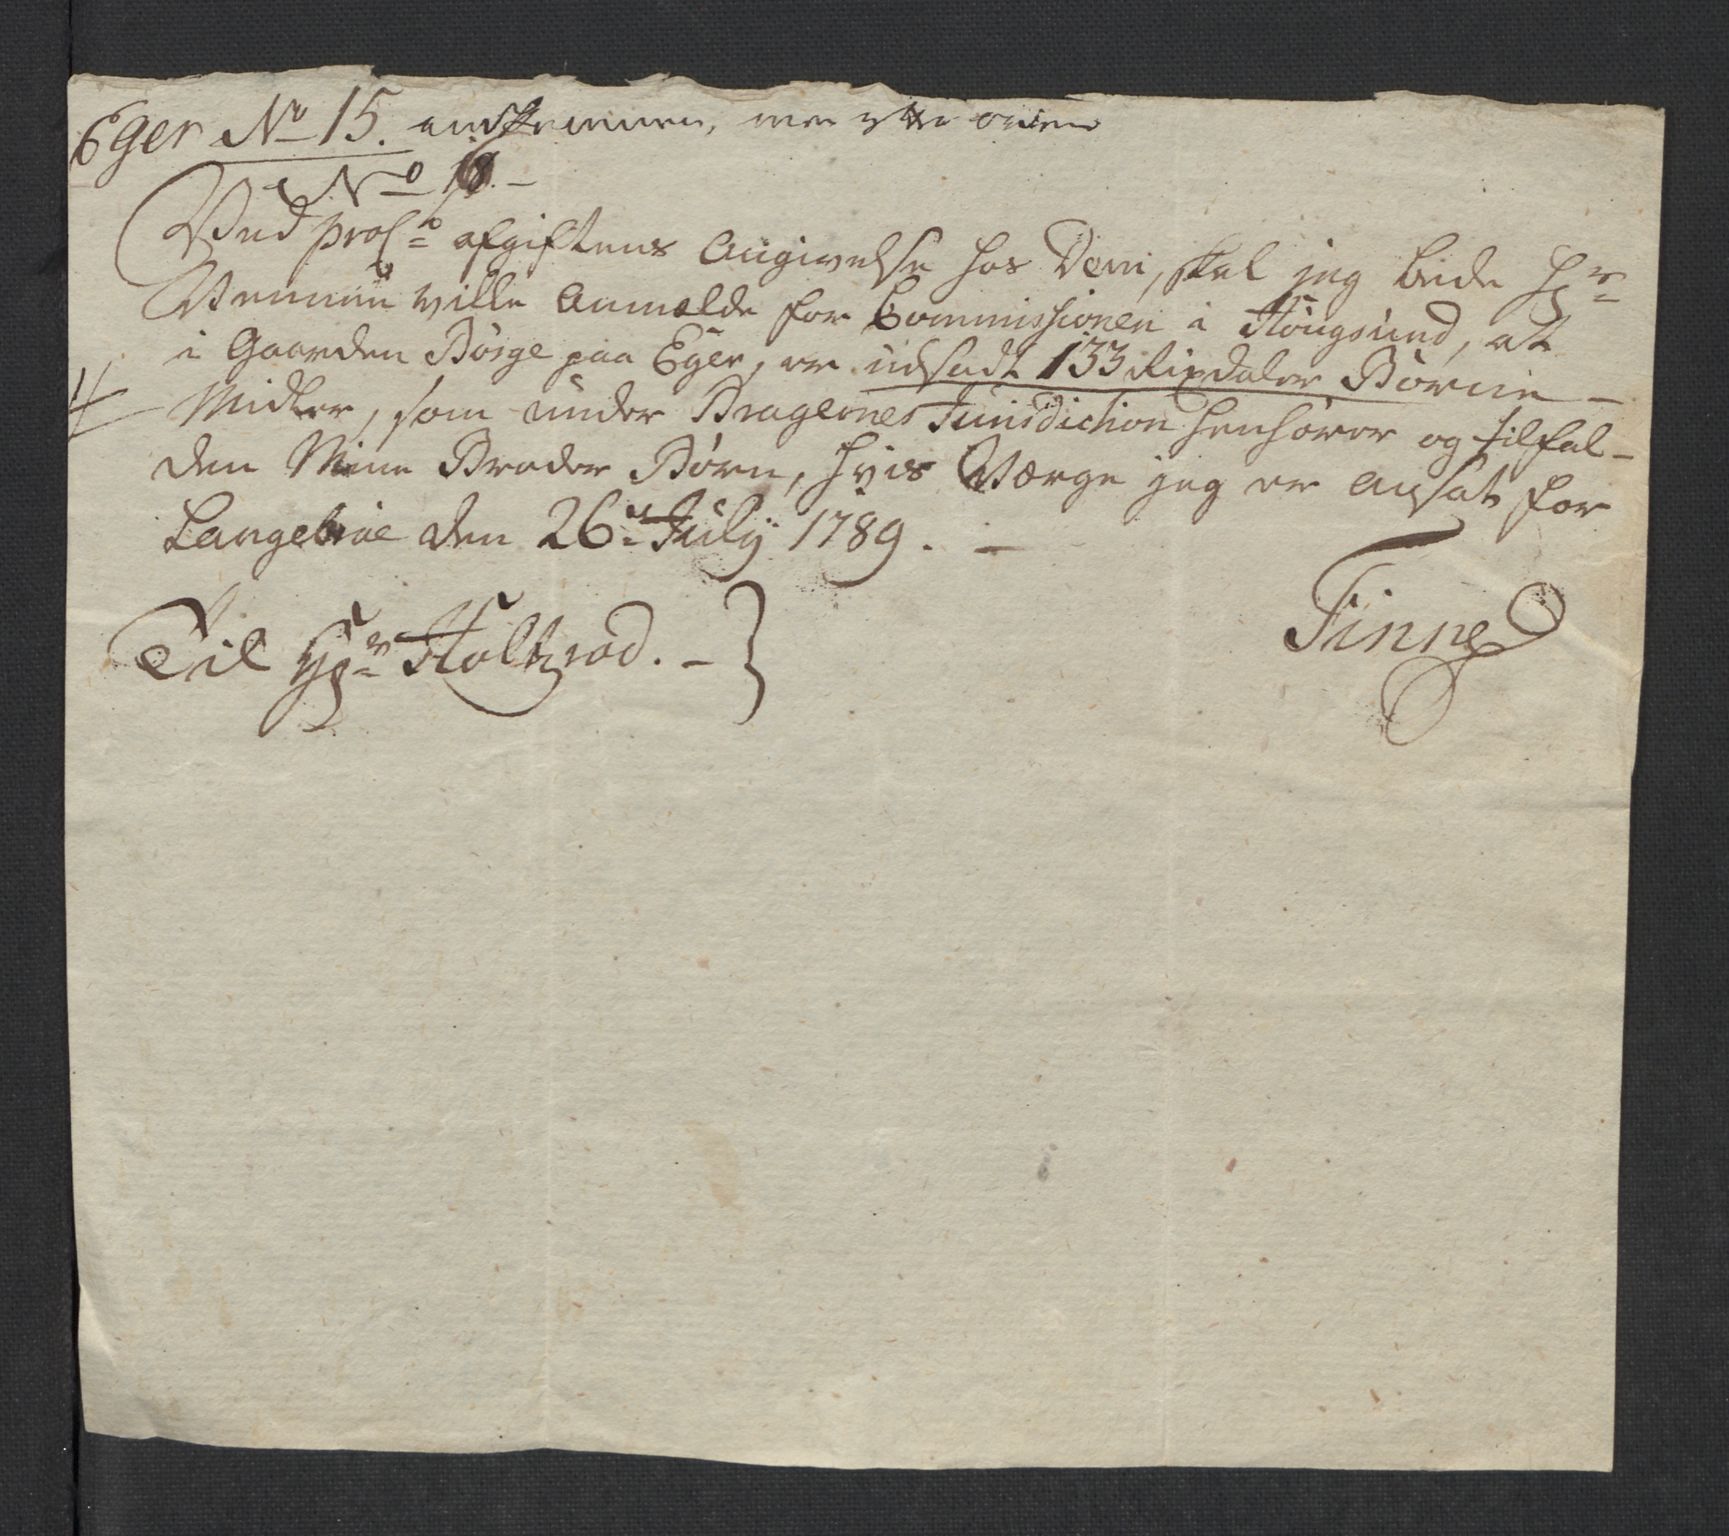 Eger No 15.
No 18. –
Ved pro Co afgiftens Angivelse hos Dem, skal jeg bede Hr
Vennen ville Anmælde for Commissionen i Hougsund, at
i Gaarden Børge paa Eger, er udsadt 133 Rixdaler Børne –
Midler, som under Bragernes Jurisdiction henhører og tilfal–
den Mine Broder Børn, hvis Værge jeg er ansat for
Langebroe den 26de July 1789. –
Finne
Til Hr Holtzrod. –